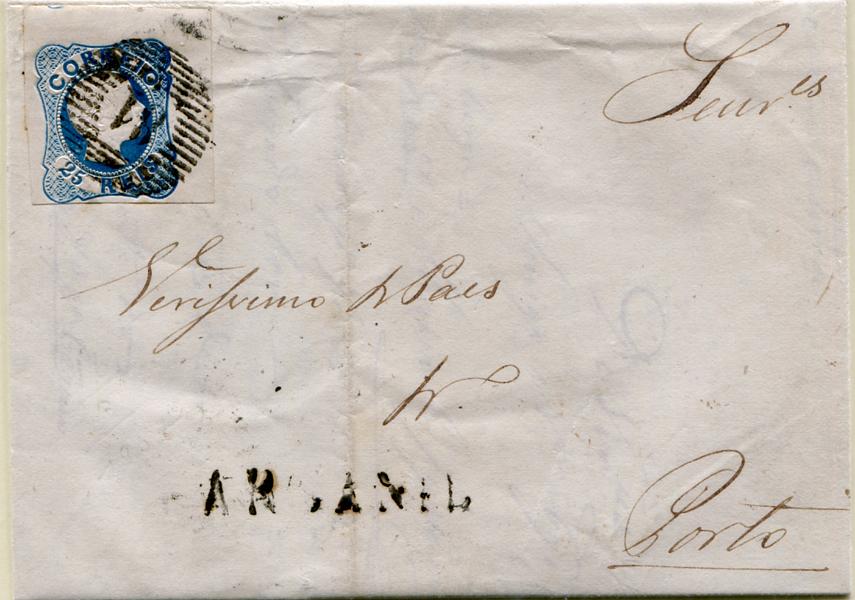 CORREIO
25 REIS
Senr.es
Verissimo & Paes
Porto